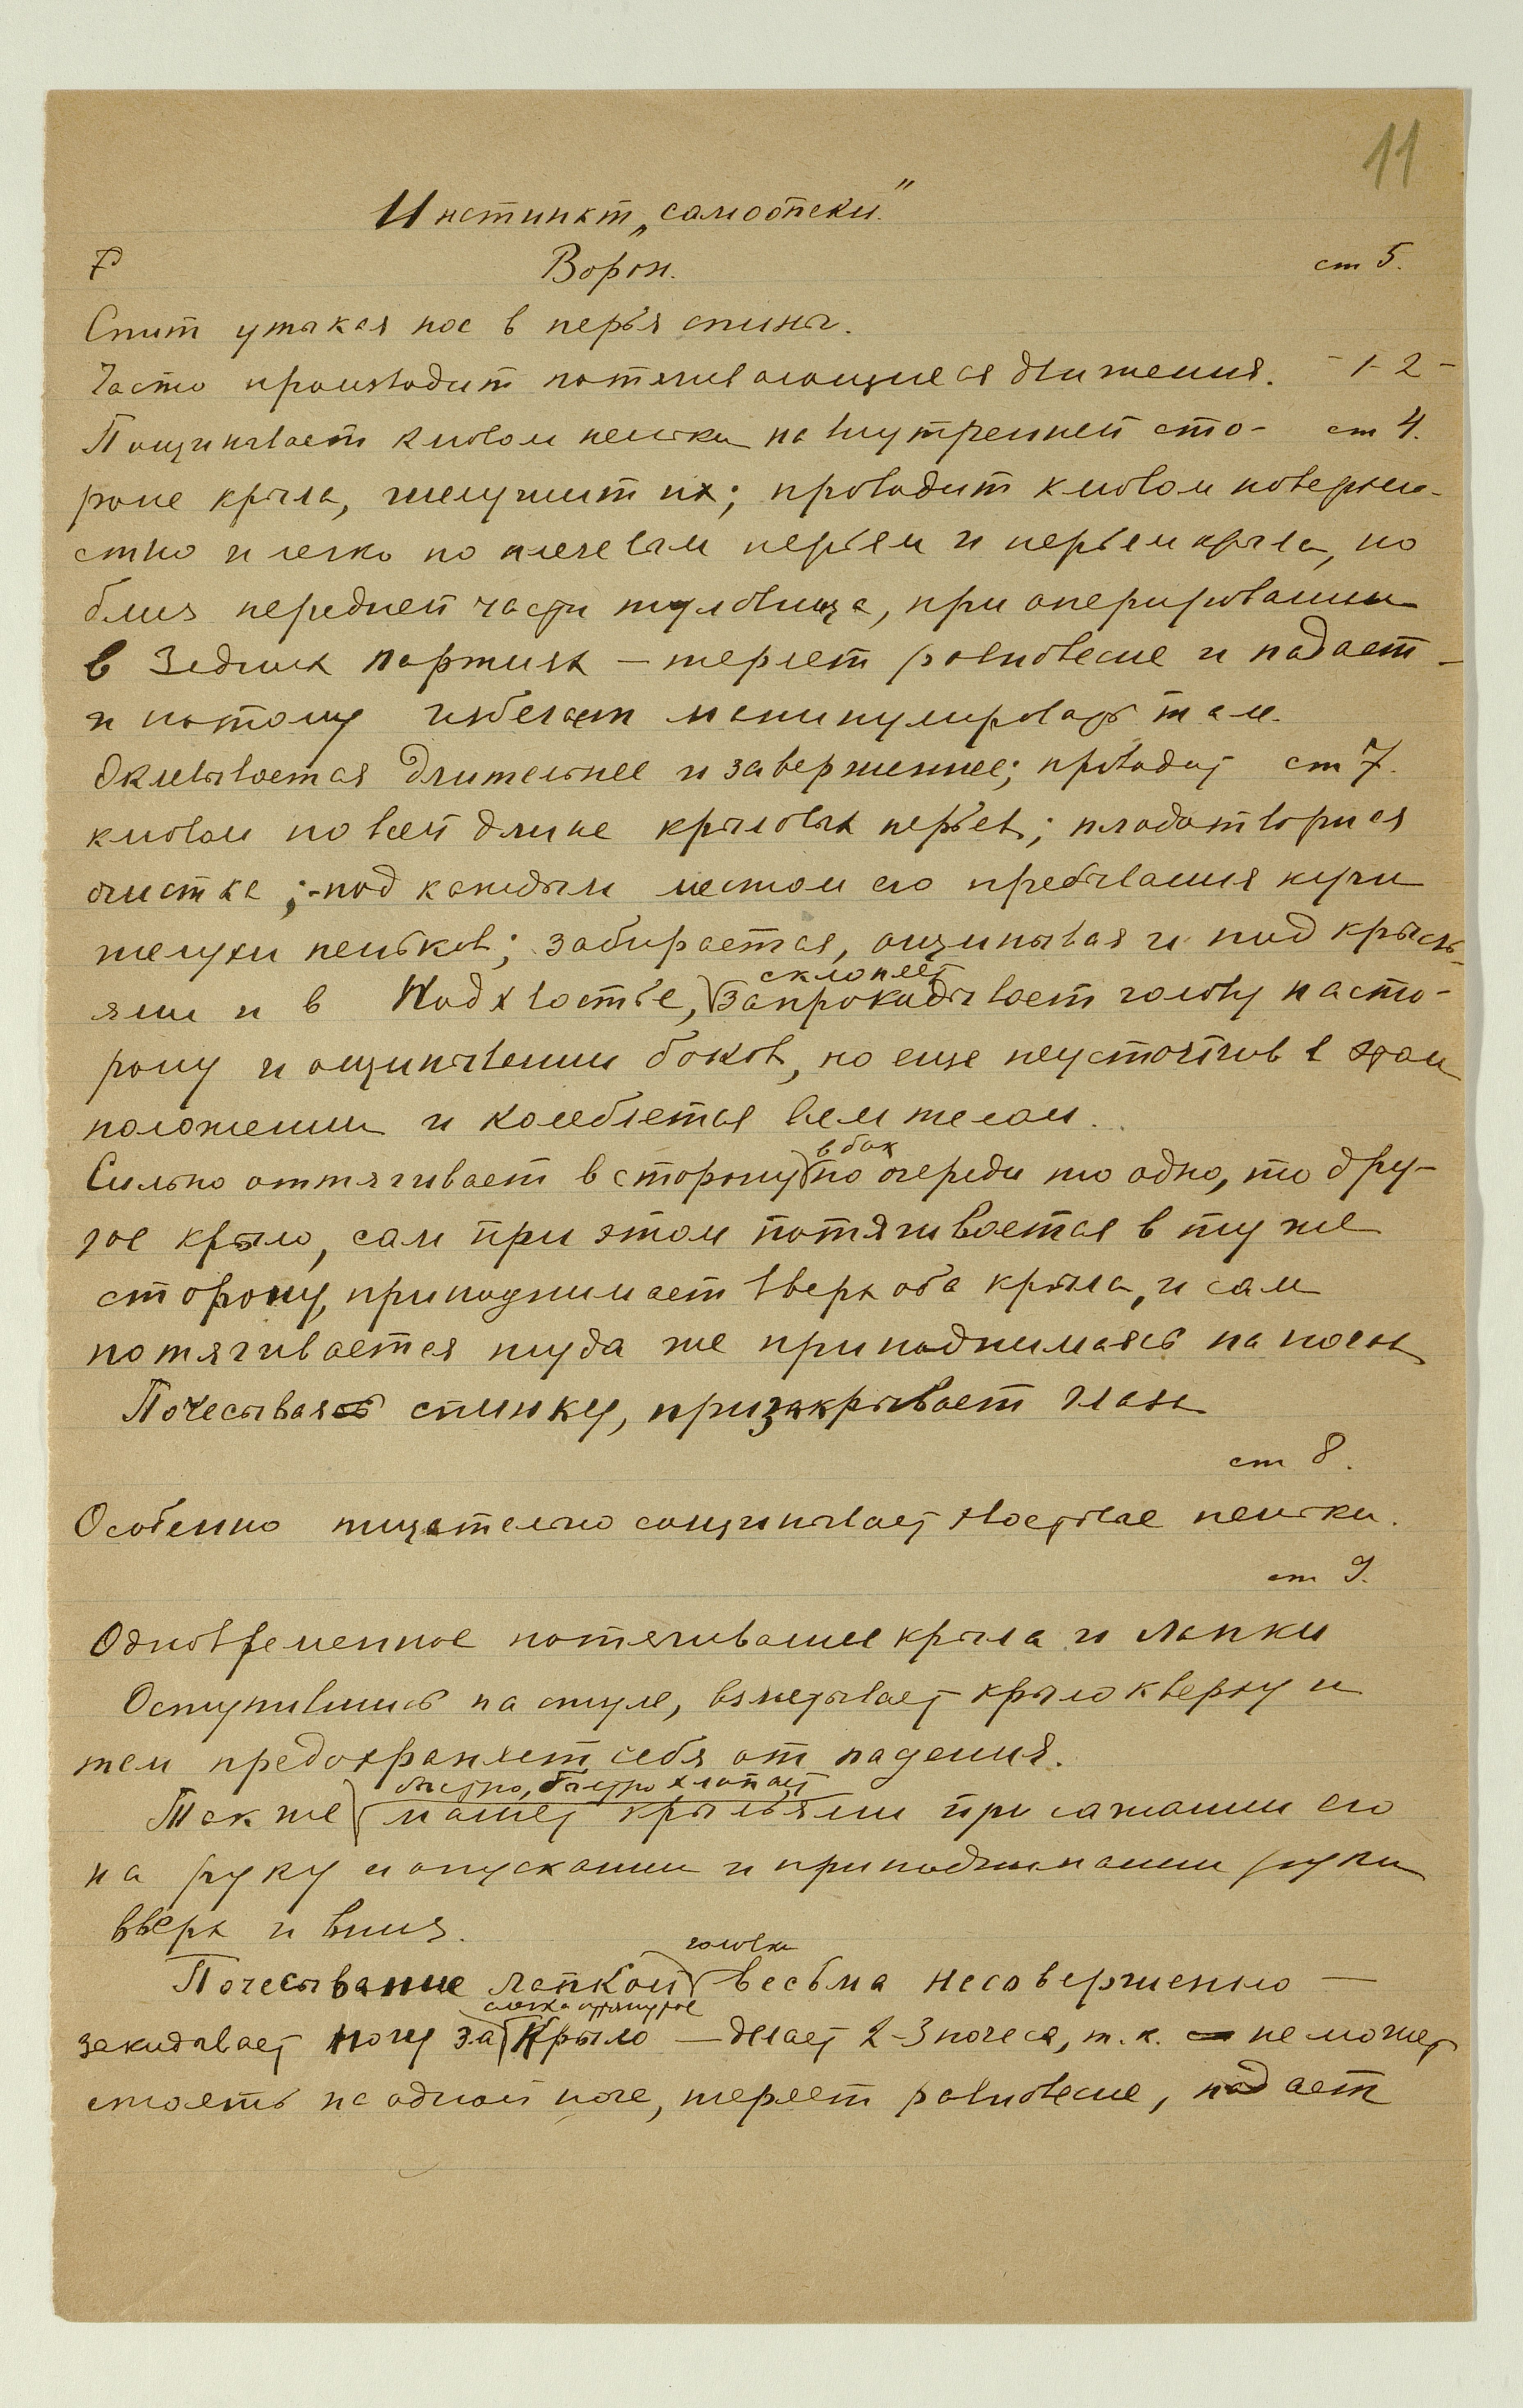 11
Инстинкт „самоопеки"
Ворон. ст 5.
Спит утыкая нос в перья спины.
Часто производит потягивающиеся движения. - 1-2 -
Пощипывает клювом пеньки на внутренней сто- ст 4.
роне крыла, шелушит их; проводит клювом поверхно-
стно и легко по плечевым перьям и перьям крыла, по
близ передней части туловища, при оперировании
в задних партиях – теряет равновесие и падает –
и потому избегает манипулировать там.
Оклевывается длительнее и завершеннее; проводит ст 7.
клювом по всей длине крыловых перьев; плодотворная
чистка; - под каждым местом его пребывания кучи
шелухи пеньков; забирается, ощипывая и под крыль-
ями и в подхвостье, запрокидывает голову на сто-
склоняет
рону и ощипывании боков, но еще неустойчив в этом
положении и колеблется всем телом.
Сильно оттягивает в сторону по очереди то одно, то дру-
в бок
гое крыло, сам при этом потягивается в ту же
сторону, приподнимает вверх оба крыла, и сам
потягивается туда же приподнимаясь на ногах
Почесывая спинку, призакрывает глаза
ст 8.
Особенно тщательно сощипывает хвостовые пеньки.
ст 9.
Одновременное потягивание крыла и лапки
Оступившись на стуле, взметывает крыло кверху и
тем предохраняет себя от падения.
быстро, быстро хлопает
Так же машет крыльями при сажании его
на руку и опускании и приподнимании руки
вверх и вниз.
головки
Почесывание лапкой весьма несовершенно —
слегка
закидывает ногу за крыло — делает 2-3 почеса, т.к. не может
стоять на одной ноге, теряет равновесие, падает